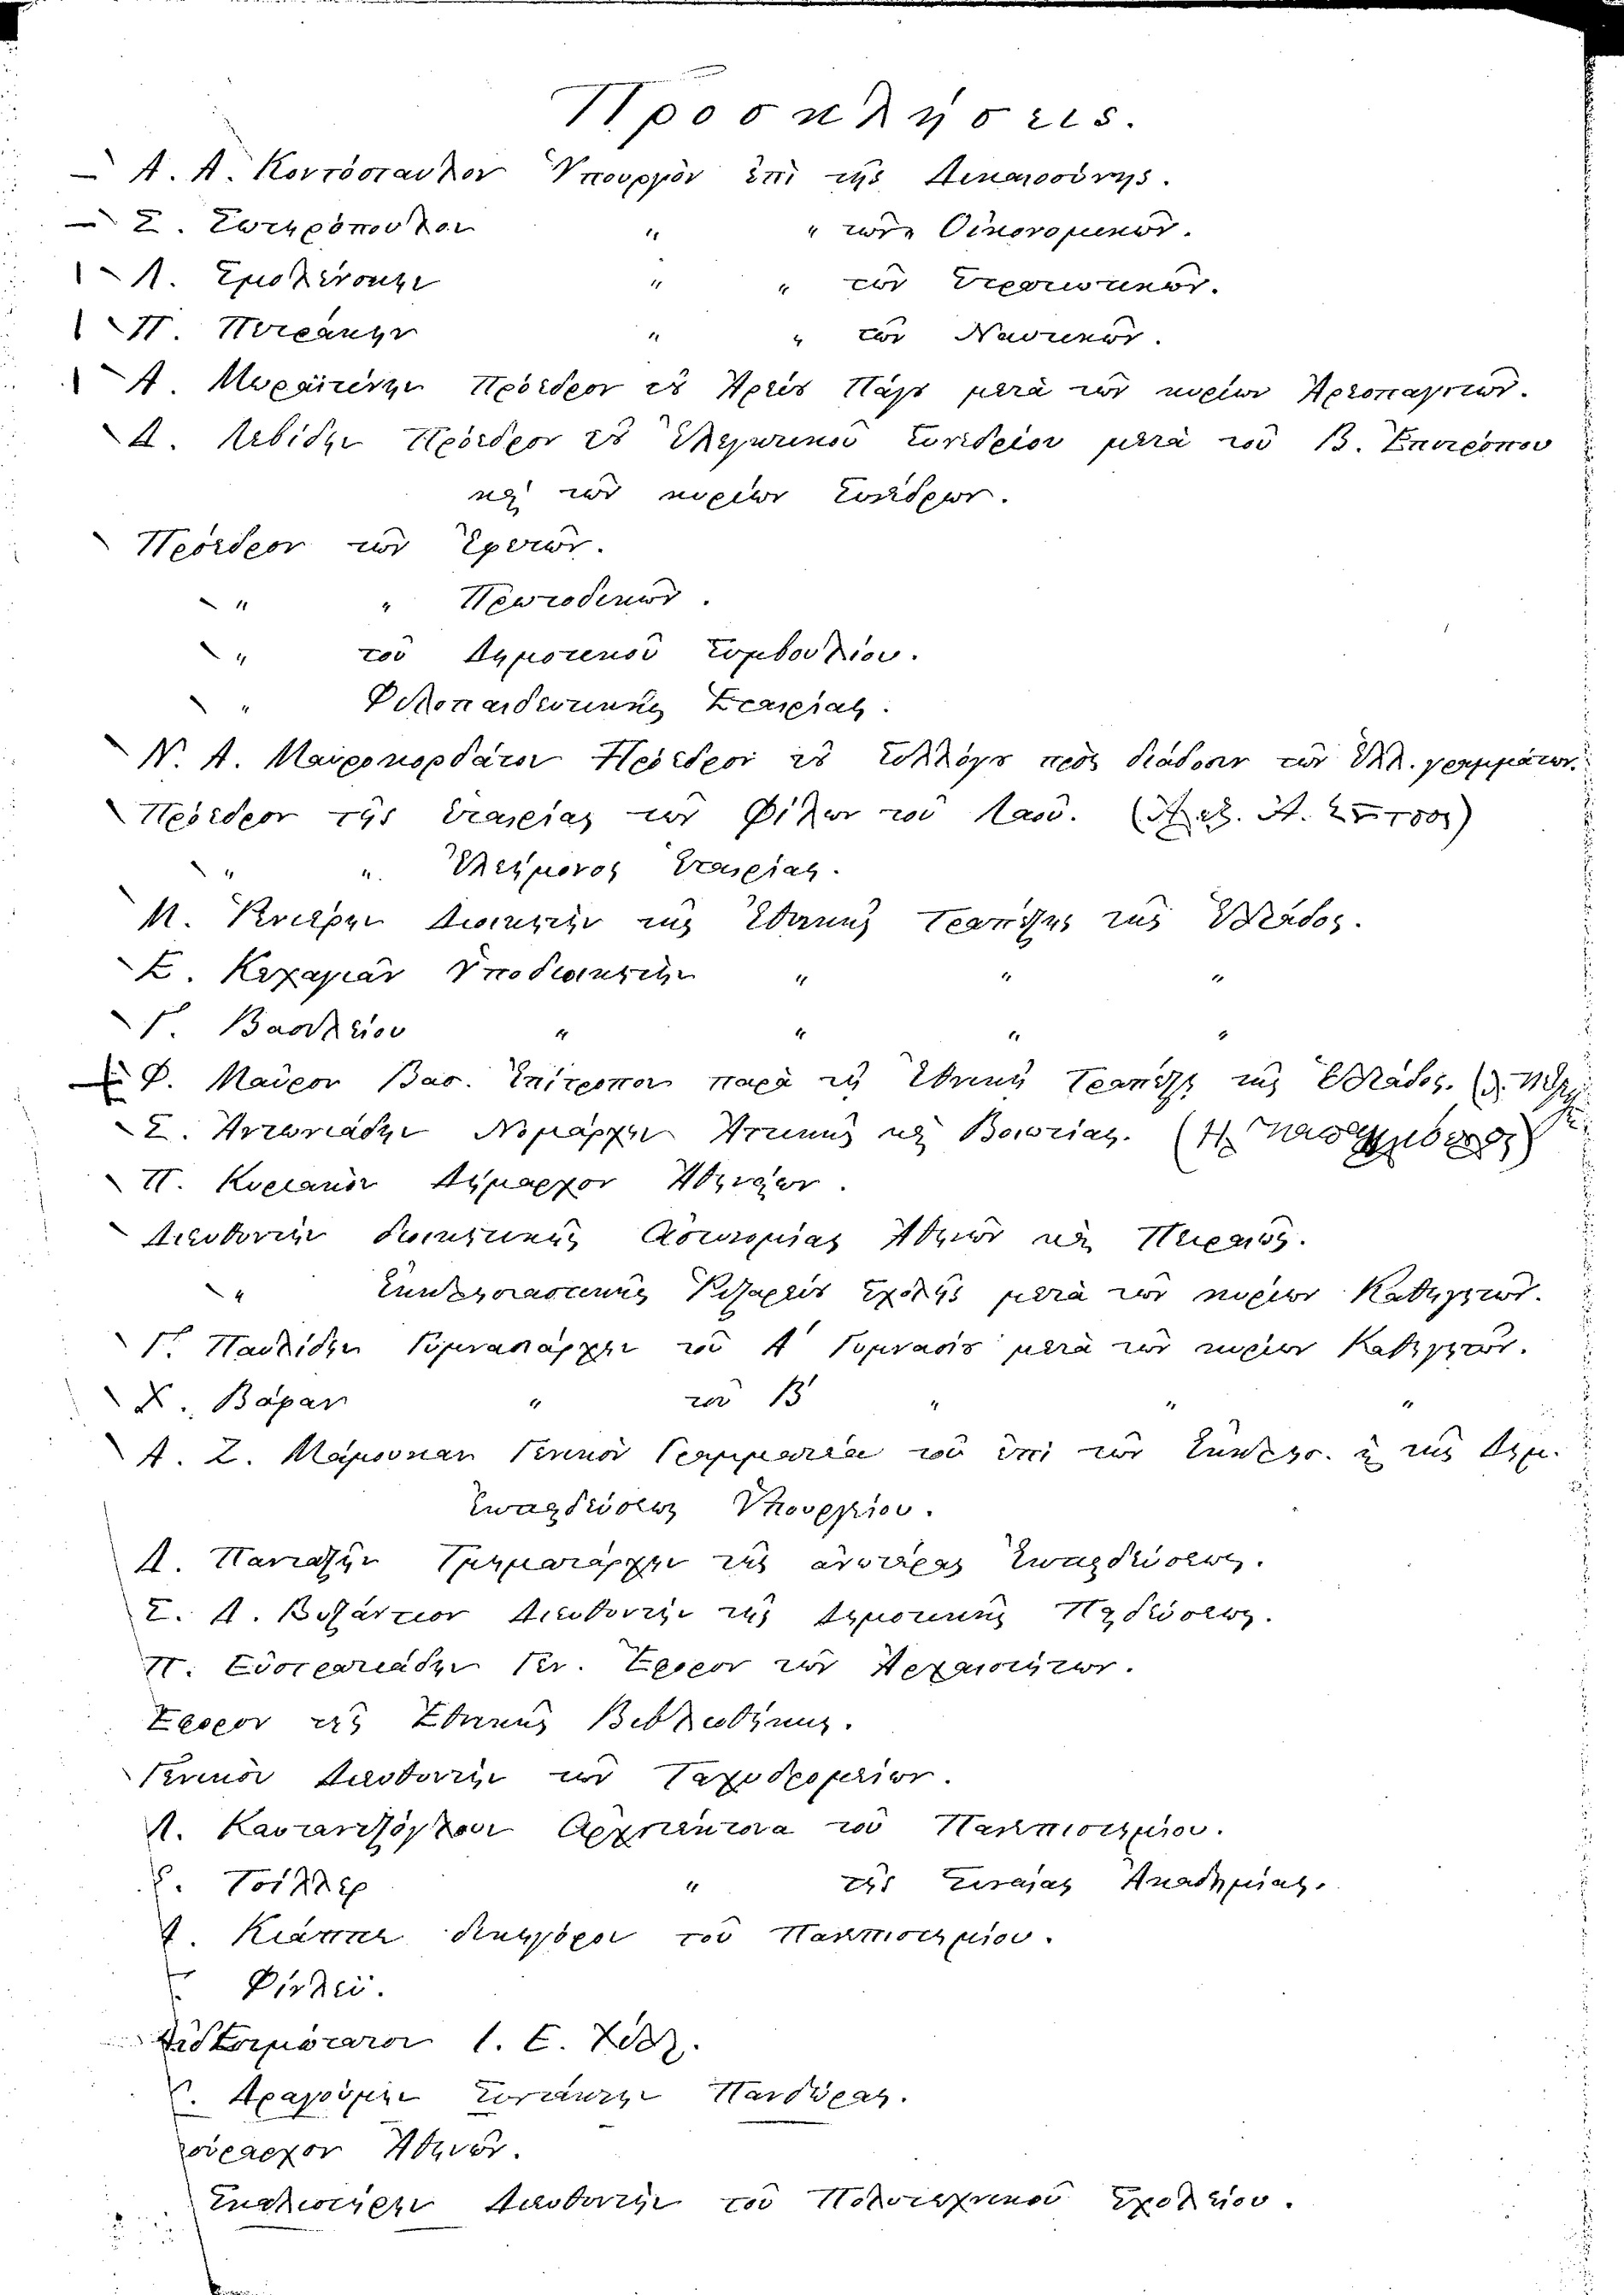 Προσκλήσεις.
Α. Α. Κοντόσταυλον Ὑπουργὸν ἐπὶ τῆς Δικαιοσύνης.
Σ. Σωτηρόπουλον " " τῶν Οἰκονομικῶν.
Λ. Σμολένσκην " " τῶν Στρατιωτικῶν.
Π. " " τῶν Ναυτικῶν.
Δ. Μωραϊτίνην Πρόεδρον τοῦ Ἀρείου Πάγου μετὰ τῶν κυρίων Ἀρεοπαγιτῶν.
Δ. Λεβίδην Πρόεδρον τοῦ Ἐλεγκτικοῦ Συνεδρίου μετὰ τοῦ Β. Ἐπιτρόπου
καὶ τῶν κυρίων Συνέδρων.
Πρόεδρον τῶν Ἐφετῶν.
" " Πρωτοδικῶν.
" τοῦ Δημοτικοῦ Συμβουλίου.
" Φιλεκπαιδευτικῆς Ἑταιρίας.
Ν. Α. Μαυροκορδάτον Πρόεδρον τοῦ Συλλόγου πρὸς διάδοσιν τῶν Ἑλλ. γραμμάτων.
Πρόεδρον τῆς ἑταιρίας τῶν Φίλων τοῦ Λαοῦ.
" " Ἐλεήμονος Ἑταιρίας.
Μ. Ῥενιέρην Διοικητὴν τῆς Ἐθνικῆς Τραπέζης τῆς Ἑλλάδος.
Ε. Κεχαγιὰν Ὑποδιοικητὴν " " "
Γ. Βασιλείου " " " "
Φ. Μαῦρον Βασ. Ἐπίτροπον παρὰ τῇ Ἐθνικῇ Τραπέζῃ τῆς Ἑλλάδος.
Σ. Ἀντωνιάδην Νομάρχην Ἀττικῆς καὶ Βοιωτίας.
Π. Κυριακὸν Δήμαρχον Ἀθηναίων.
Διευθυντὴν διοικητικῆς ἀστυνομίας Ἀθηνῶν καὶ Πειραιῶς.
" Ἐκκλησιαστικῆς Ῥιζαρείου Σχολῆς μετὰ τῶν κυρίων Καθηγητῶν.
Γ. Παυλίδην Γυμνασιάρχην τοῦ Α Γυμνασίου μετὰ τῶν κυρίων Καθηγητῶν.
Χ. Βάφαν " τοῦ Β " " "
Δ. Σ. Μάμουκαν Γενικὸν Γραμματέα τοῦ ἐπὶ τῶν Ἐκκλησ. καὶ τῆς Δημ.
Ἐκπαιδεύσεως Ὑπουργείου.
Δ. Πανταζὴν Τμηματάρχην τῆς ἀνωτέρας Ἐκπαιδεύσεως.
Σ. Δ. Βυζάντιον Διευθυντὴν τῆς Δημοτικῆς Παιδεύσεως.
Π. Εὐστρατιάδην Γεν. Ἔφορον τῶν Ἀρχαιοτήτων.
Ἔφορον τῆς Ἐθνικῆς Βιβλιοθήκης.
Γενικὸν Διευθυντὴν τῶν Ταχυδρομείων.
Λ. Καυταντζόγλου Ἀρχιτέκτονα τοῦ Πανεπιστημίου.
Ε. Τσίλλερ " τῆς Σιναίας Ἀκαδημίας.
Α. Κιάππε δικηγόρον τοῦ Πανεπιστημίου.
Γ. Φίνλεϋ.
Αἰδεσιμώτατον Ι. Ε. Χίλλ.
Δραγούμην Συντάκτην Πανδώρας.
Φρούραρχον Ἀθηνῶν.
Διευθυντὴν τοῦ Πολυτεχνικοῦ Σχολείου.